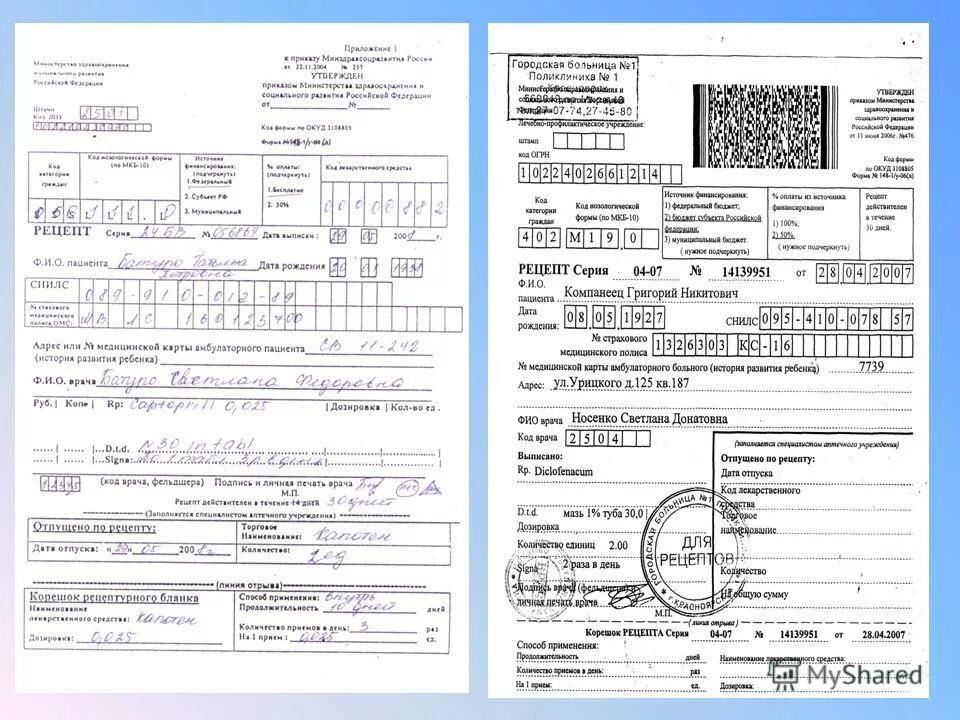 Приложение 1
к приказу Минздравсоцразвития России
от 22.11.2004 № 257
УТВЕРЖДЕН
приказом Министерства здравоохранения и
социального развития Российской Федерации
от №
Министерство здравоохранения
и социального развития
Российской Федерации
Штамп
Код ЛПУ 2501
Код формы по ОКУД 3108805
Форма № 148-1/у-04 (л)
Код категории граждан
Код нозологической формы (по МКБ-10)
Источник финансирования: (подчеркнуть)
1. Федеральный
2. Субъект РФ
3. Муниципальный
% оплаты: (подчеркнуть)
1. Бесплатно
2. 50%
Код лекарственного средства
0 0 0 0 0 8 8 2
РЕЦЕПТ Серия 24БВ № 056869 Дата выписки: 29 05 2008 г.
Ф.И.О. пациента Батуро Татьяна Петровна Дата рождения 20 01 1931
СНИЛС
089-910-012-89
№ страхового медицинского полиса ОМС: МВ 1С 160125700
Адрес или № медицинской карты амбулаторного пациента СВ 11-242
(история развития ребенка)
Ф.И.О. врача Батуро Светлана Федоровна
Руб. | Коп. | Rp: 0,025 | Дозировка | Кол-во ед.
D.t.d. N 30 in tabl
Signa: 1 табл 3 р в день
12345 (код врача, фельдшера) Подпись и личная печать врача
М.П.
Рецепт действителен в течение 14 дней 30 дней
(Заполняется специалистом аптечного учреждения)
Отпущено по рецепту:
Дата отпуска: «29» 05 2008 г.
Торговое наименование: Капотен
Количество: 2ед
(линия отрыва)
Корешок рецептурного бланка
Наименование лекарственного средства: Капотен
Дозировка: 0,025
Способ применения: Внутрь
Продолжительность 10 дней дней
Количество приемов в день: 3 раз
На 1 прием: 0,025 ед.
Городская больница №1
Поликлиника № 1
Тел. 27-07-74, 27-45-80
Лечебно-профилактическое учреждение
штамп
код ОГРН
1022402661214
УТВЕРЖДЕН
приказом Министерства
здравоохранения и
социального развития
Российской Федерации
от 13 июня 2006г. №476
Код формы
по ОКУД 3108805
Форма № 148-1/у-06(л)
Код категории граждан
402
Код нозологической формы (по МКБ-10)
M19.0
Источник финансирования:
1) федеральный бюджет;
2) бюджет субъекта Российской федерации;
3) муниципальный бюджет.
( нужное подчеркнуть)
% оплаты из источника финансирования
1) 100%;
2) 50%.
( нужное подчеркнуть)
Рецепт действителен в течение 30 дней.
РЕЦЕПТ Серия 04-07 № 14139951 от 28 04 2007
Ф.И.О. пациента Компанеец Григорий Никитович
Дата рождения: 08.05.1927 СНИЛС 095-410-078 57
№ страхового медицинского полиса 1326303 КС-16
№ медицинской карты амбулаторного больного (история развития ребенка) 7739
Адрес: ул.Урицкого д.125 кв.187
ФИО врача Носенко Светлана Донатовна
Код врача 2504
Выписано:
Rp. Diclofenacum
D.t.d мазь 1% туба 30,0
Дозировка
Количество единиц 2.00
Signa 2 раза в день
Подпись врача (фельдшера) и
личная печать врача
М.П.
(заполняется специалистом аптечного учреждения)
Отпущено по рецепту:
Дата отпуска
Код лекарственного средства
Торговое наименование
Количество
На общую сумму
ГОРОДСКАЯ БОЛЬНИЦА №1
ДЛЯ РЕЦЕПТОВ
г.КРАСНОЯРСК
(линия отрыва)
Корешок РЕЦЕПТА Серия 04-07 № 14139951 от 28.04.2007
Способ применения:
Продолжительность дней
Количество приемов в день: раз
На 1 прием: ед.
Наименование лекарственного средства:
Дозировка:
MyShared